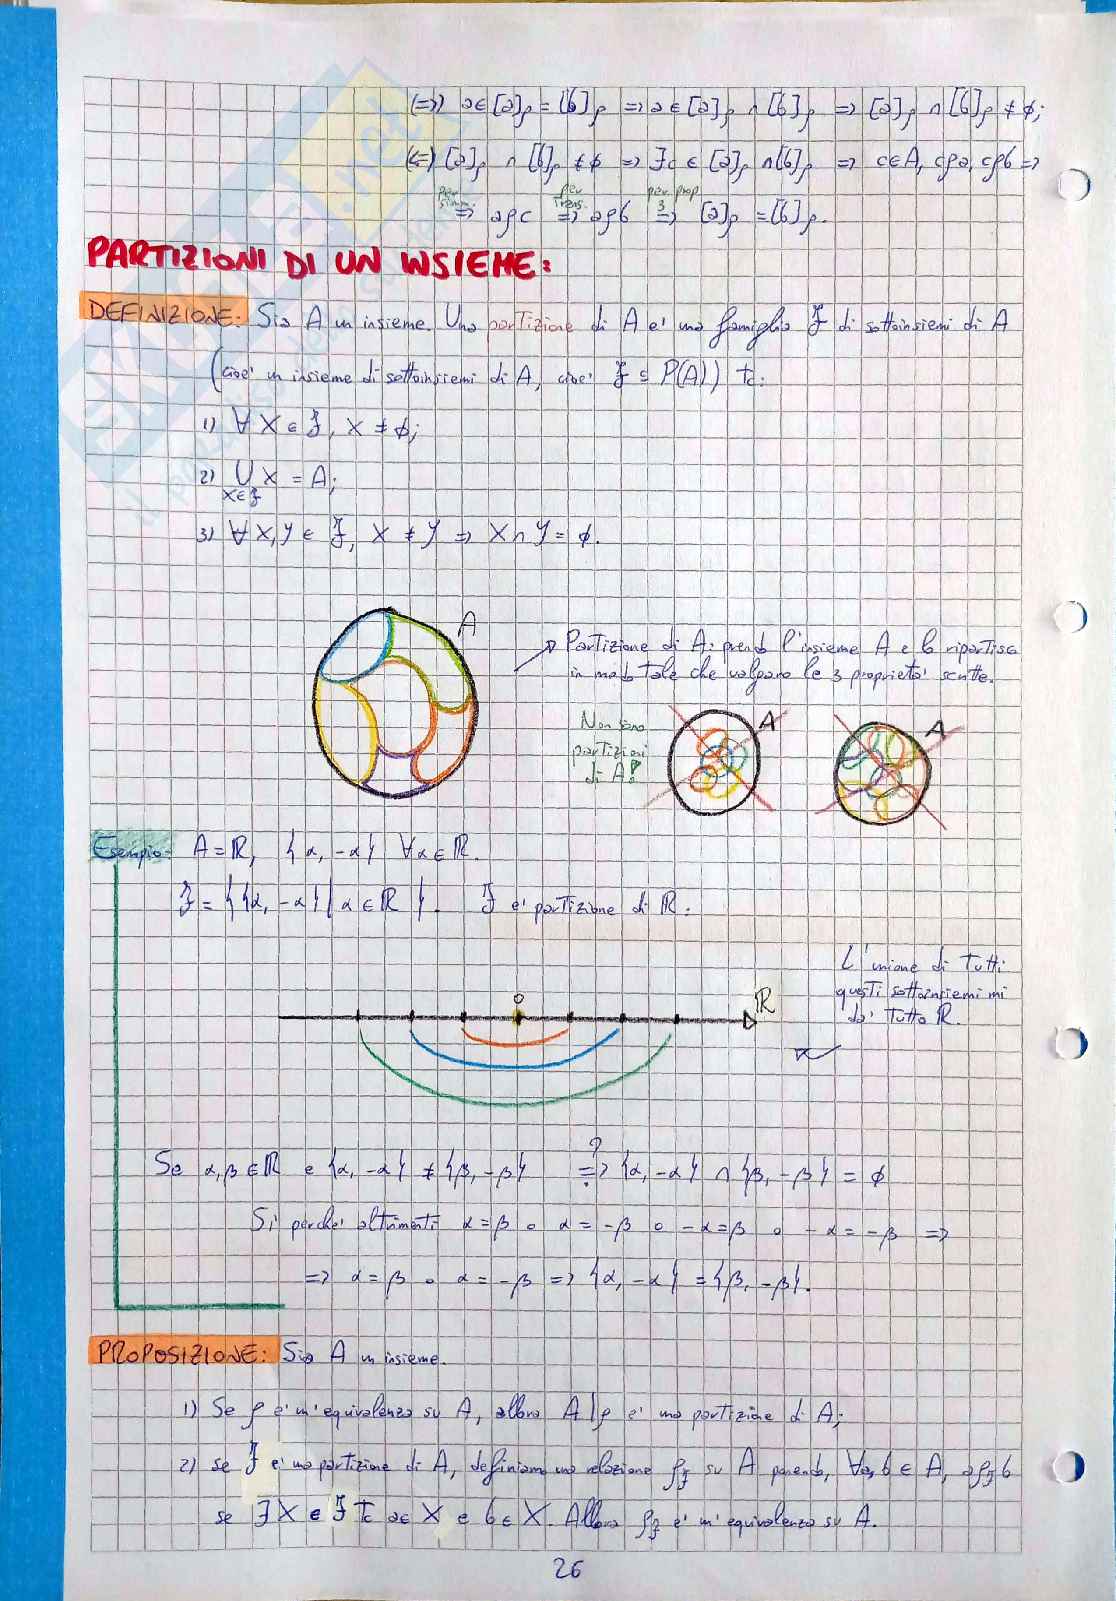 (⇒) a∈[a]ρ = [b]ρ ⇒ a∈[a]ρ ∩ [b]ρ ⇒ [a]ρ ∩ [b]ρ ≠ ∅;
(⇐) [a]ρ ∩ [b]ρ ≠ ∅ ⇒ ∃c ∈ [a]ρ ∩ [b]ρ ⇒ c∈A, cρa, cρb ⇒
per simm. ⇒ aρc per Trans. ⇒ aρb per prop 3 ⇒ [a]ρ = [b]ρ.
PARTIZIONI DI UN INSIEME:
DEFINIZIONE: Sia A un insieme. Una partizione di A e' una famiglia F di sottoinsiemi di A
(cioe' un insieme di sottoinsiemi di A, cioe' F ⊆ P(A)) tc:
1) ∀ X ∈ F, X ≠ ∅;
2) ∪ X = A;
X∈F
3) ∀ X, Y ∈ F, X ≠ Y ⇒ X ∩ Y = ∅.
A
Partizione di A: prendo l'insieme A e lo ripartisco
in modo tale che valgano le 3 proprieta' scritte.
Non sono
partizioni
di A!
A
A
Esempio: A = ℝ, {α, -α} ∀α∈ℝ.
F = {{α, -α} | α∈ℝ}. F e' partizione di ℝ:
L'unione di tutti
questi sottoinsiemi mi
da' tutto ℝ.
0
ℝ
Se α, β ∈ ℝ e {α, -α} ≠ {β, -β} ?⇒ {α, -α} ∩ {β, -β} = ∅
Si' perche' altrimenti α = β o α = -β o -α = β o -α = -β ⇒
⇒ α = β o α = -β ⇒ {α, -α} = {β, -β}.
PROPOSIZIONE: Sia A un insieme.
1) Se ρ e' un'equivalenza su A, allora A|ρ e' una partizione di A;
2) se F e' una partizione di A, definiamo una relazione ρF su A ponendo, ∀a, b ∈ A, aρFb
se ∃X ∈ F tc a∈X e b∈X. Allora ρF e' un'equivalenza su A.
26